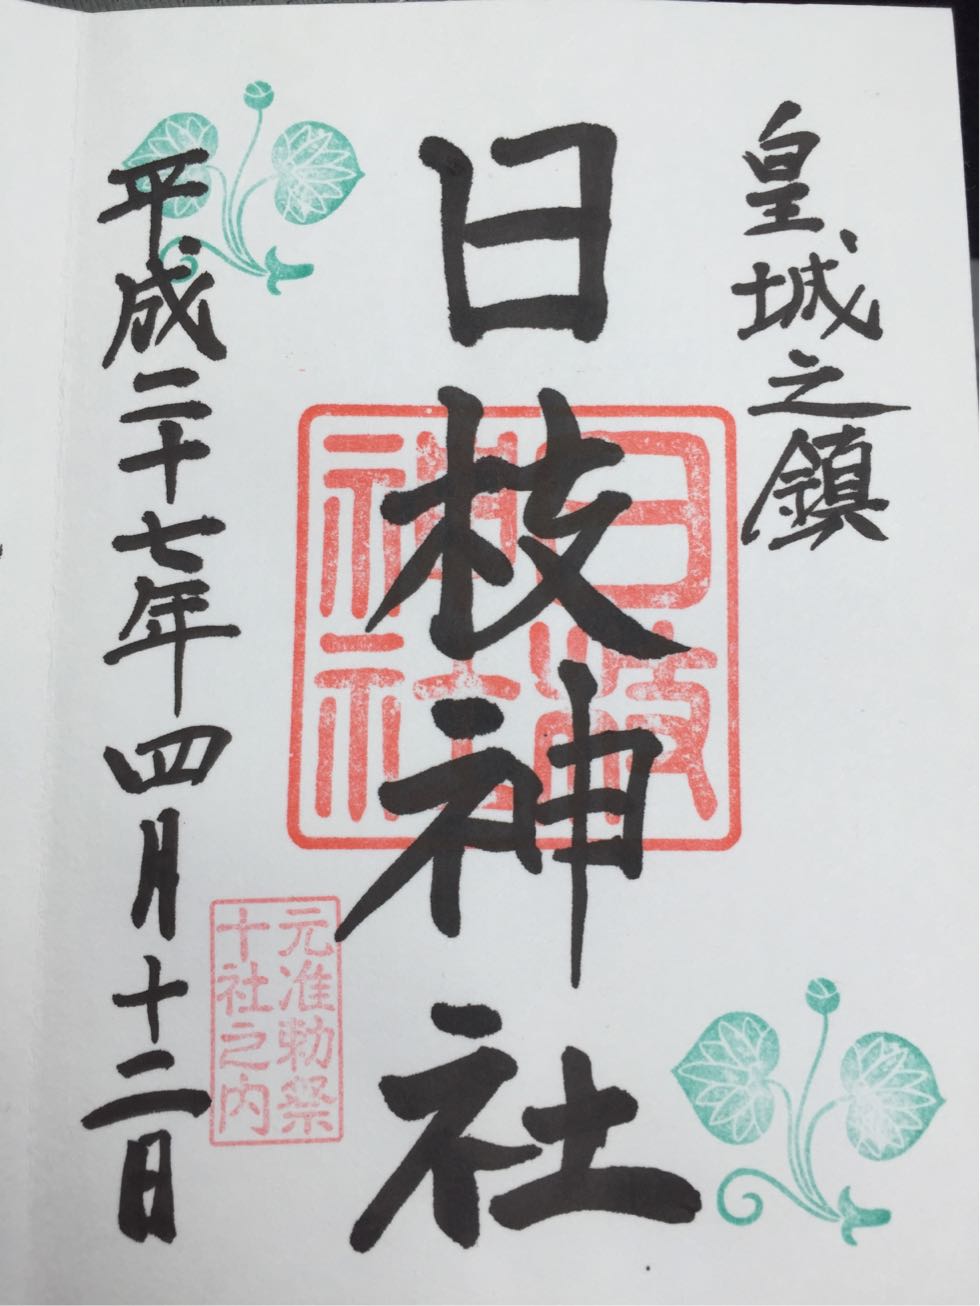 皇城之鎮
日枝神社
日枝
神社
元准勅祭
十社之内
平成二十七年四月十二日